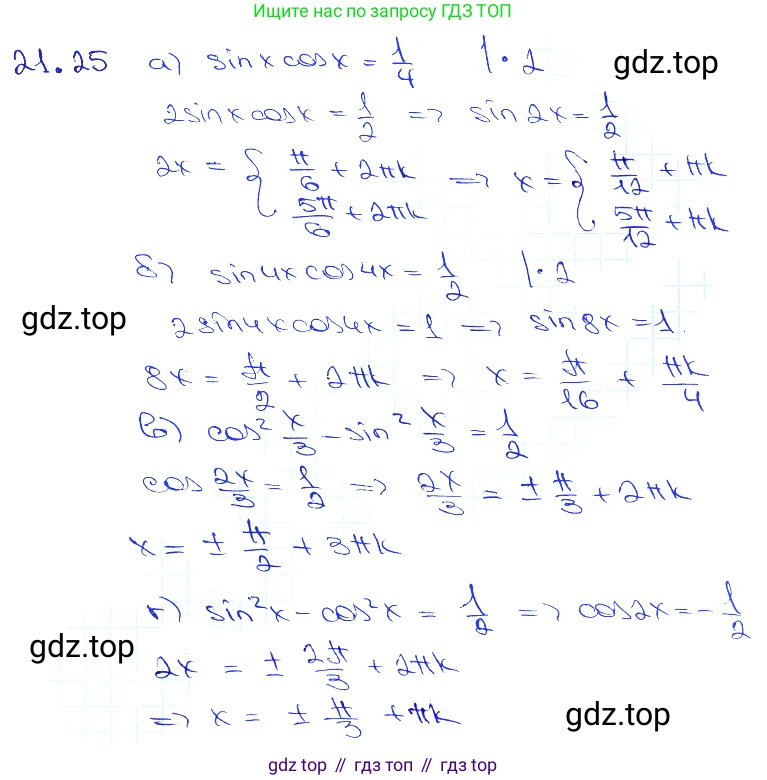 Ищите нас по запросу ГДЗ ТОП
21.25 а) sinx cosx = 1/4 | · 2 gdz.top
2sinx cosx = 1/2 => sin2x = 1/2
2x = { π/6 + 2πk => x = { π/12 + πk
5π/6 + 2πk 5π/12 + πk
б) sin4x cos4x = 1/2 | · 2
gdz.top 2sin4x cos4x = 1 => sin8x = 1.
8x = π/2 + 2πk => x = π/16 + πk/4
в) cos² x/3 - sin² x/3 = 1/2
cos 2x/3 = 1/2 => 2x/3 = ± π/3 + 2πk
x = ± π/2 + 3πk
г) sin²x - cos²x = 1/2 => cos2x = - 1/2
gdz.top 2x = ± 2π/3 + 2πk
=> x = ± π/3 + πk gdz.top
gdz top // гдз топ // gdz top